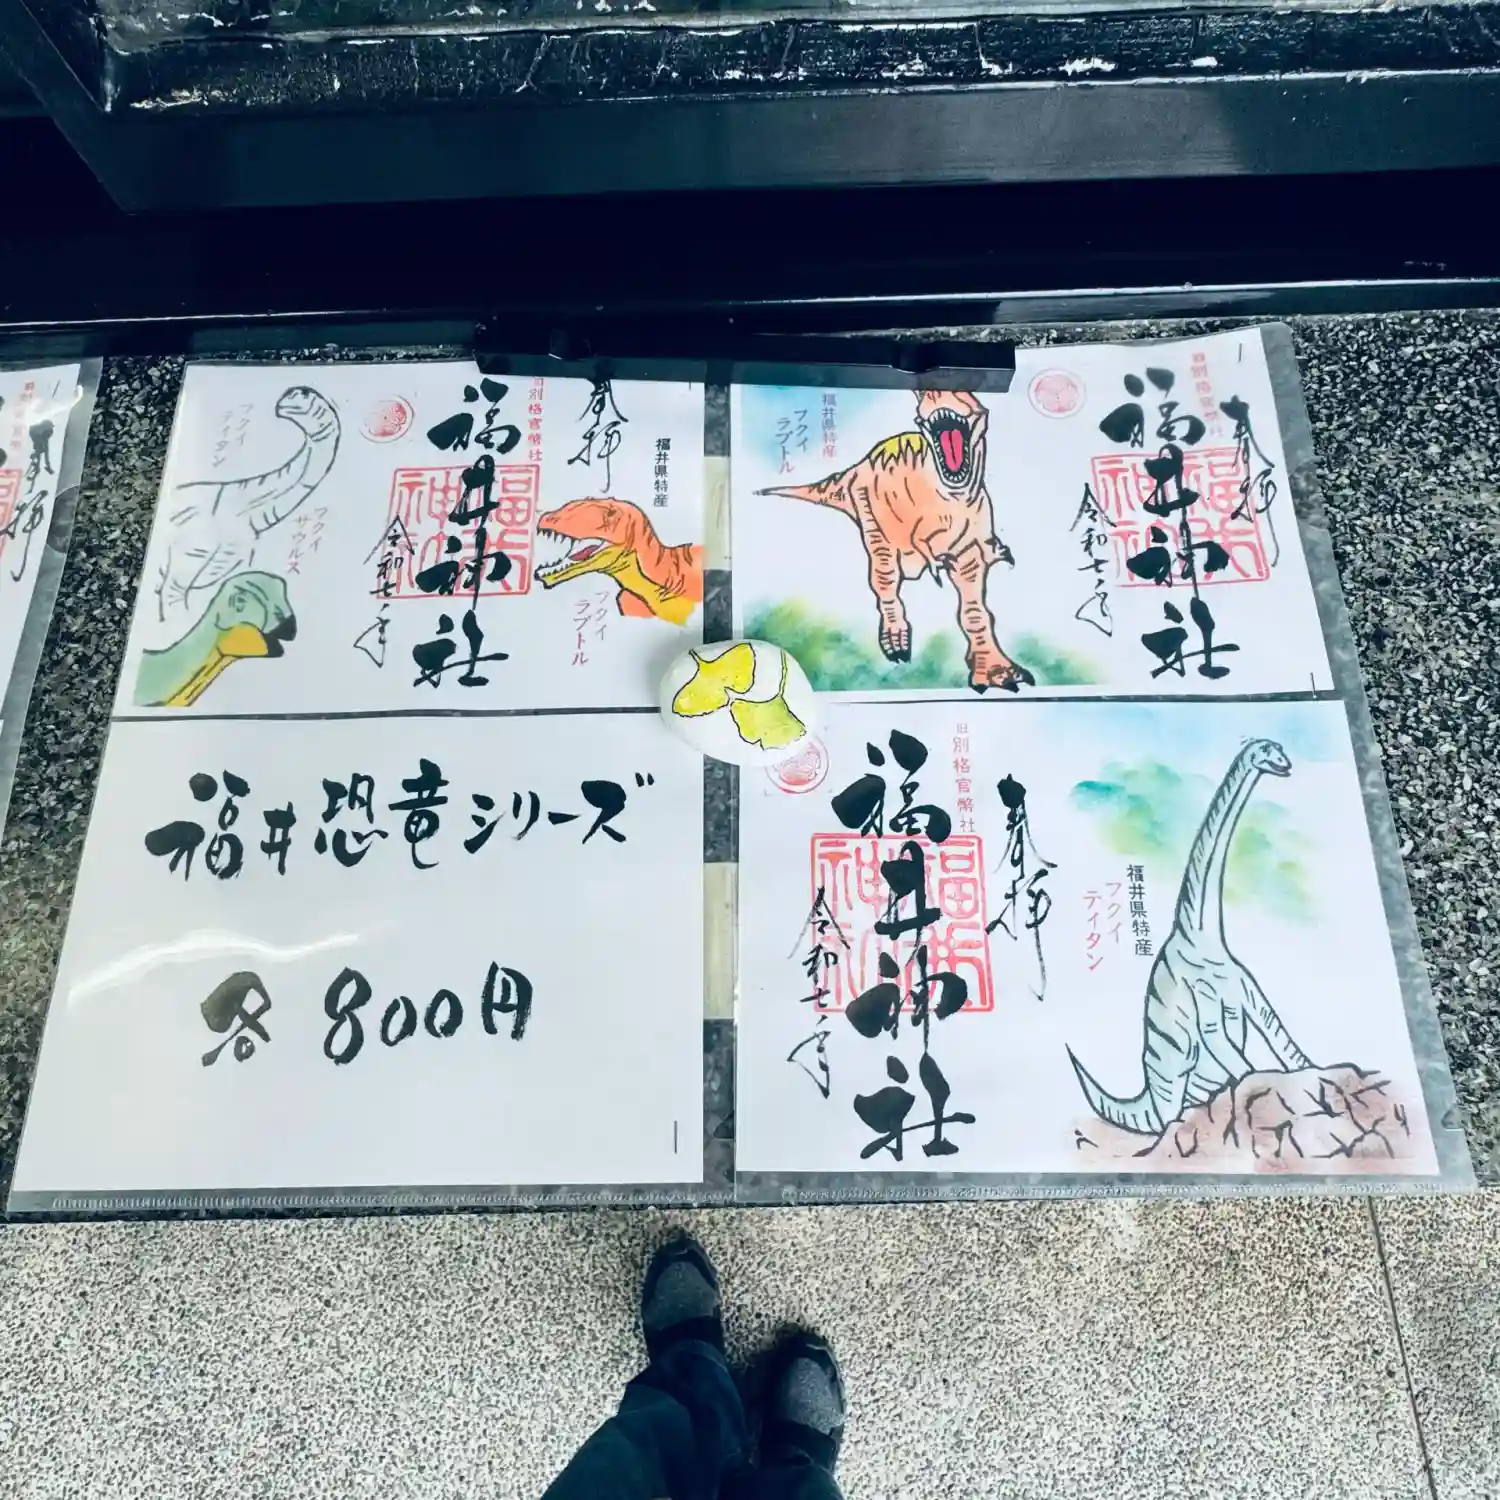 奉拝
福井神社
旧別格官幣社
令和七年
福井県特産
フクイ
ティタン
フクイ
サウルス
フクイ
ラプトル
奉拝
福井神社
旧別格官幣社
令和七年
福井県特産
フクイ
ラプトル
福井恐竜シリーズ
各800円
奉拝
福井神社
旧別格官幣社
令和七年
福井県特産
フクイ
ティタン
奉拝